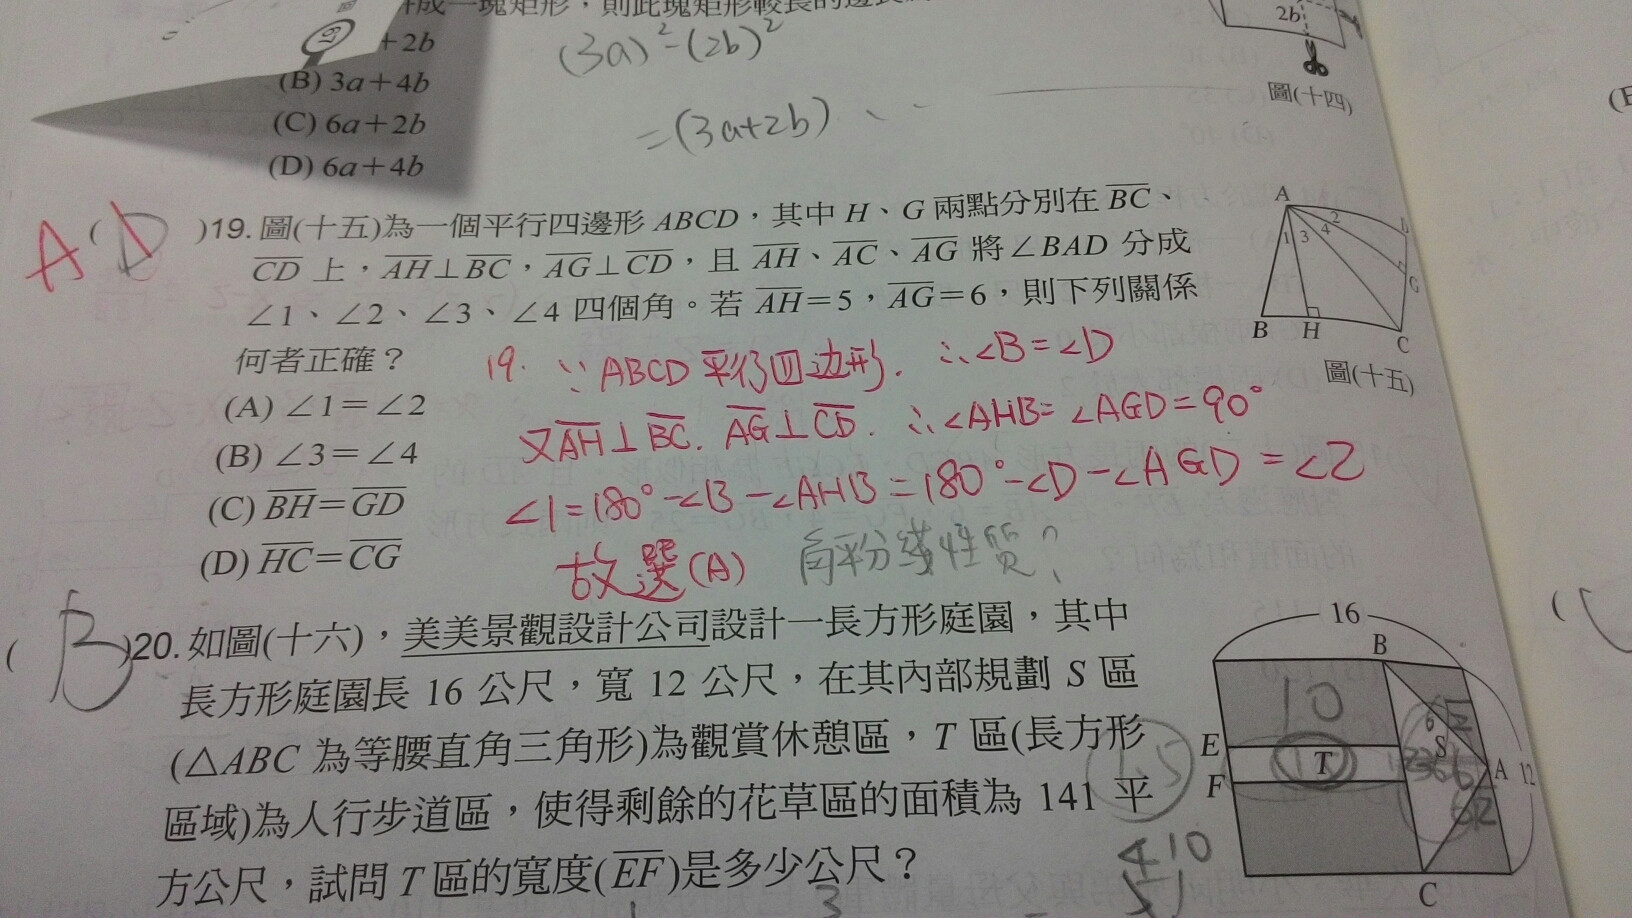 成一塊矩形，則此塊矩形較長的邊長
+2b
(B) 3a+4b
(C) 6a+2b
(D) 6a+4b
(3a)²-(2b)²
=(3a+2b)
2b
圖(十四)
A ( D )19. 圖(十五)為一個平行四邊形 ABCD，其中 H、G 兩點分別在 BC、
CD 上，AH⊥BC，AG⊥CD，且 AH、AC、AG 將∠BAD 分成
∠1、∠2、∠3、∠4 四個角。若 AH=5，AG=6，則下列關係
何者正確？
(A) ∠1=∠2
(B) ∠3=∠4
(C) BH=GD
(D) HC=CG
19. ∵ ABCD 平行四边形. ∴∠B=∠D
又AH⊥BC. AG⊥CD. ∴∠AHB=∠AGD=90°
∠1=180°-∠B-∠AHB=180°-∠D-∠AGD=∠2
故選(A)
角平分線性質?
A
D
1 3 4 2
G
B H C
圖(十五)
( B )20. 如圖(十六)，美美景觀設計公司設計一長方形庭園，其中
長方形庭園長 16 公尺，寬 12 公尺，在其內部規劃 S 區
(△ABC 為等腰直角三角形)為觀賞休憩區，T 區(長方形
區域)為人行步道區，使得剩餘的花草區的面積為 141 平
方公尺，試問 T 區的寬度(EF)是多少公尺？
16
B
10
6
S
E
T
A 12
F
C